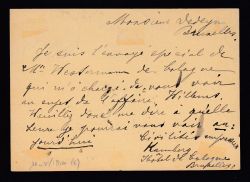 Monsieur Dedeyn
Bruxelles.
Je suis l'envoyé spécial de
Mr Westermann de Cologne
qui m'a chargé de vous voir
au sujet de l'affaire Willems.
Veuillez donc me dire à quelle
heure je pourrai vous voir au-
jourd'hui
Civilités empressées
Hamberg
Hôtel de Cologne
Bruxelles